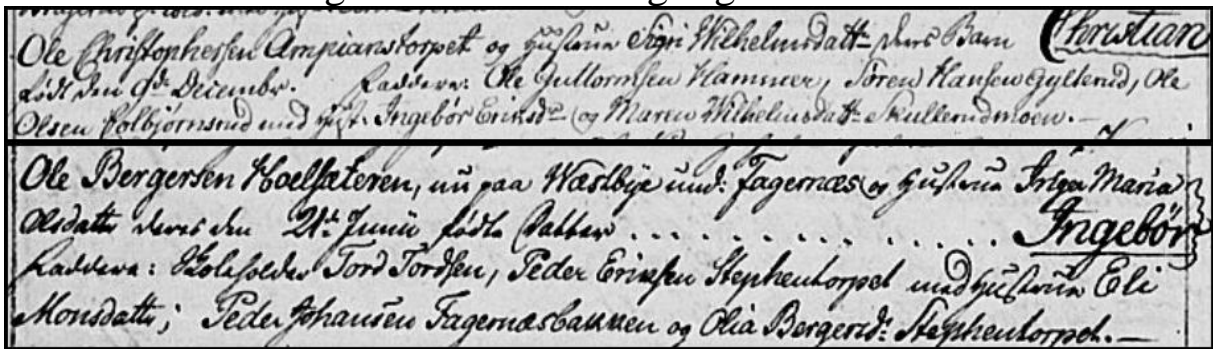 Ole Christophersen Ampianstorpet og Hustrue Sigri Wilhelmsdattr deres Barn Christian
født den 9de Decembr. Faddere: Ole Guttormsen Hammer, Sören Hansen Gylterud, Ole
Olsen Colbjörnsrud med Hust: Ingebör Eriksdr og Maren Wilhelmsdattr Skullerudmoen. —
Ole Bergersen Hoelsæteren, nu paa Wæstbye und: Fagernæs og Hustrue Inger Maria
Olsdattr deres den 21de Junii fødte Datter . . . . . . . . . . . . . . Ingebör
Faddere: Skoleholder Tord Tordsen, Peder Eriksen Stephentorpet med Hustrue Eli
Monsdattr; Peder Johansen Fagernæsbakken og Olia Bergersdr Stephentorpet. —